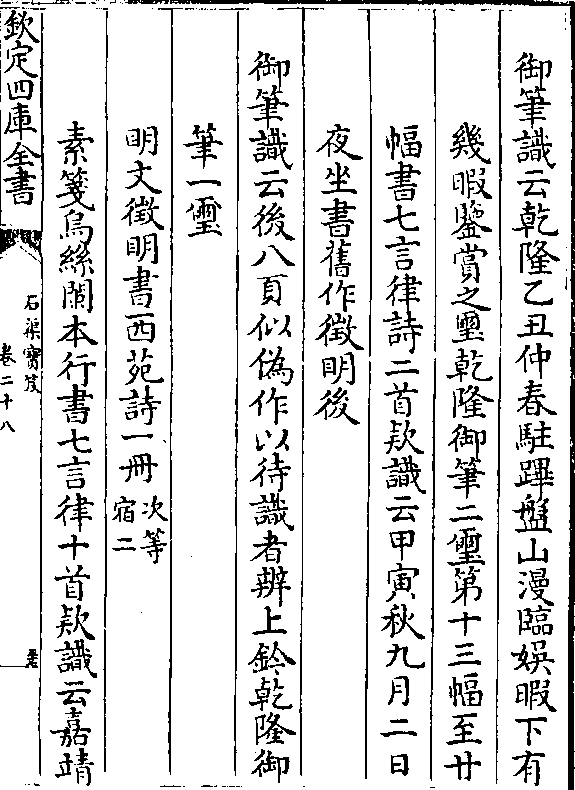 御筆識云乾隆乙丑仲春駐蹕盤山漫臨娛暇下有
幾暇鑒賞之璽乾隆御筆二璽第十三幅至廿
幅書七言律詩二首欵識云甲寅秋九月二日
夜坐書舊作徴明後
御筆識云後八頁似偽作以待識者辨上鈐乾隆御
筆一璽
明文徴明書西苑詩一冊次等
宿二
素箋烏絲闌本行書七言律十首欵識云嘉靖
欽定四庫全書
石渠寶笈
卷二十八